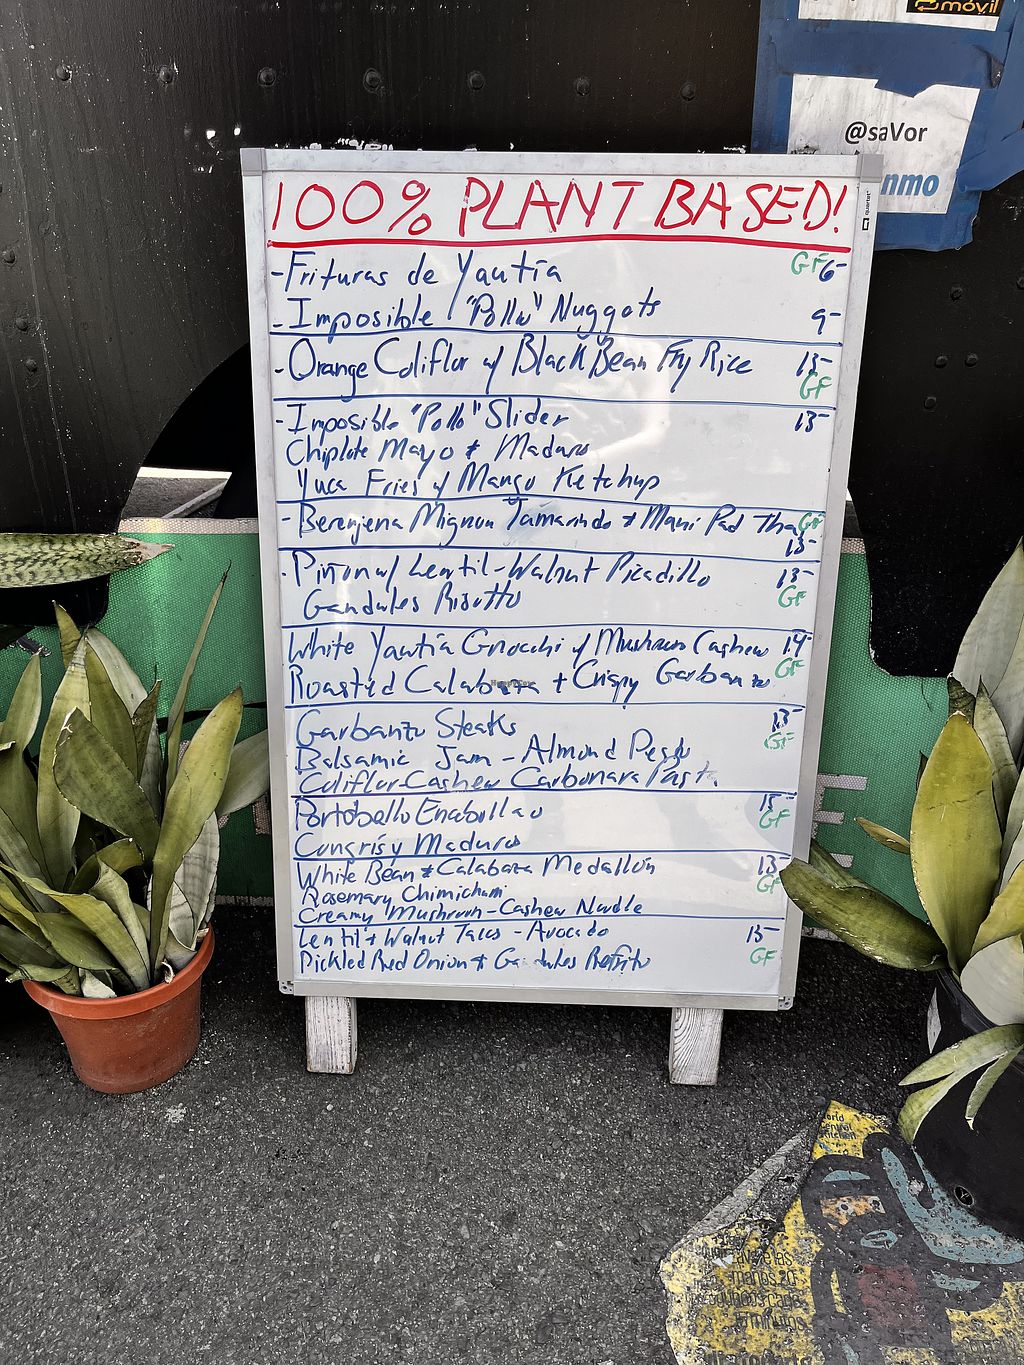 móvil
@saVor
nmo
100% PLANT BASED!
-Frituras de Yautía GF 6-
-Imposible "Pollo" Nuggets 9-
-Orange Coliflor w/ Black Bean Fry Rice 13-
GF
-Imposible "Pollo" Slider 13-
Chiplote Mayo + Maduro
Yuca Fries w/ Mango Ketchup
-Berenjena Mignon Tamarindo + Mani Pad Thai GF
13-
-Piñon w/ Lentil-Walnut Picadillo 13-
Gandules Risotto GF
White Yautía Gnocchi w/ Mushroom Cashew 14-
GF
Roasted Calabaza + Crispy Garbanzo
Garbanzo Steaks 13-
GF
Balsamic Jam - Almond Pesto
Coliflor-Cashew Carbonara Pasta
Portobello Enabollao 15-
GF
Congris y Maduros
White Bean + Calabaza Medallón 13-
GF
Rosemary Chimichurri
Creamy Mushroom-Cashew Noodle
Lentil + Walnut Tacos - Avocado 13-
Pickled Red Onion + Gandules Refrito GF
quartet
HappyCow
manos 20